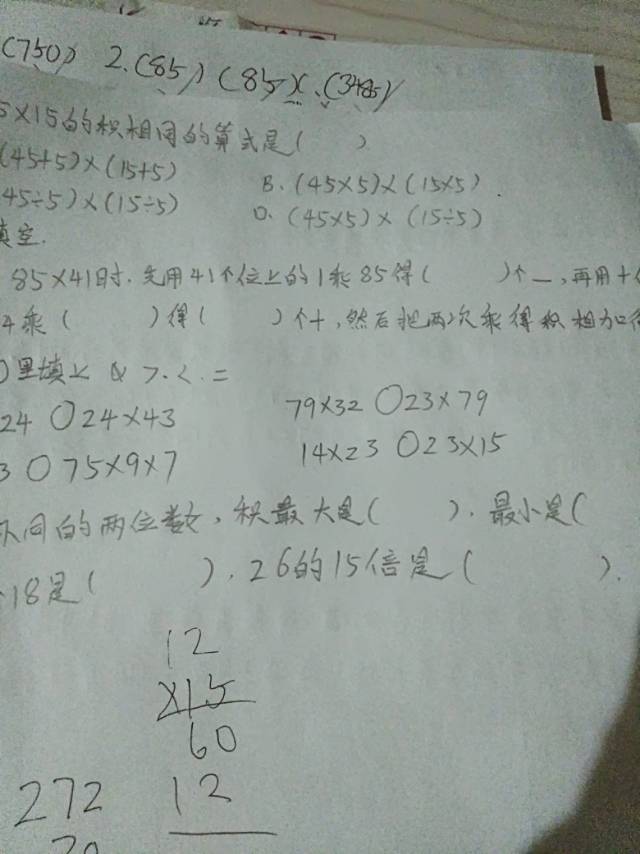 (750) 2.(85) (85)(.(3485)
5×15的积相同的算式是( )
(45+5)×(15+5) B.(45×5)×(15×5).
45÷5)×(15÷5) D.(45×5)×(15÷5)
填空.
85×41时.先用41个位上的1乘85得( )个一,再用十
4乘( )得( )个十,然后把两次乘得积相加得
○里填上 >.<.=
24○24×43 79×32○23×79
3○75×9×7 14×23○23×15
不同的两位数,积最大是( ).最小是(
18是( ).26的15倍是( ).
12
×15
60
272 12